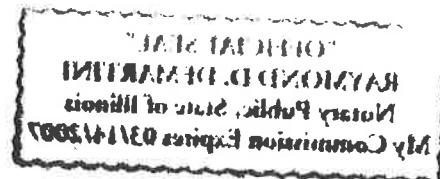 "OFFICIAL SEAL"
RAYMOND D. DEMARTINI
Notary Public, State of Illinois
My Commission Expires 03/14/2007